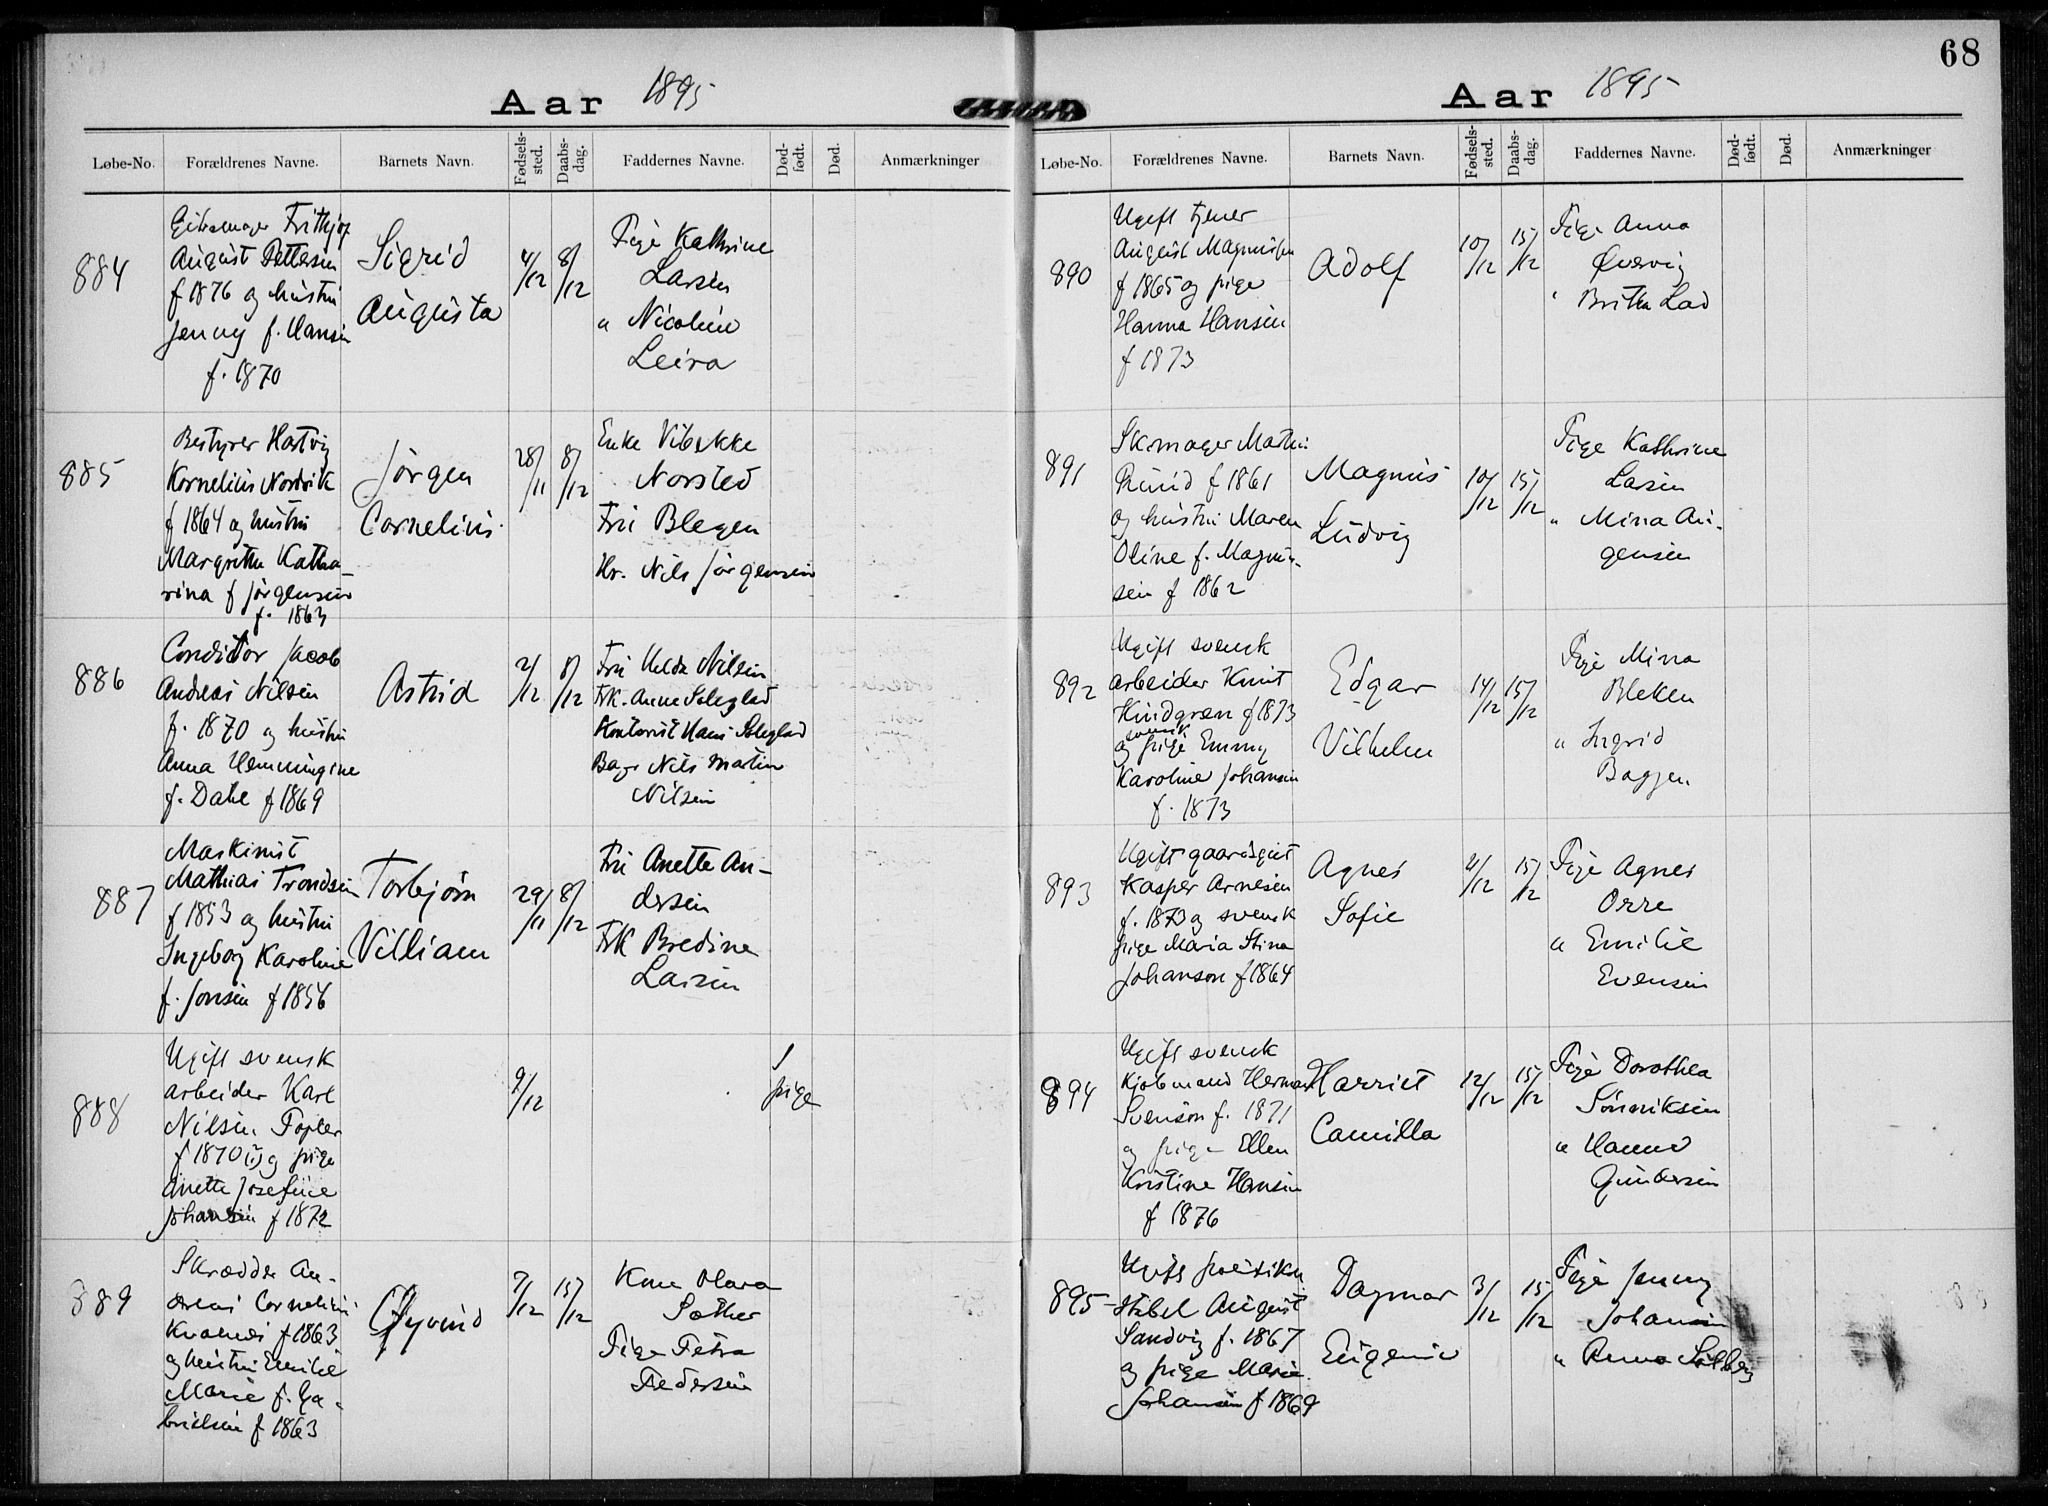 Aar 1895
Løbe-No. Forældrenes Navne. Barnets Navn. Fødsels-sted. Daabs-dag. Faddernes Navne. Død-født. Død. Anmærkninger
884
Frithjof
August Pettersen
f 1876 og hustru
Jenny f. Hansen
f. 1870
Sigrid
Augusta
4/12 8/12
Pige Kathrine
Larsen
" Nicoline
Leira
885
Bestyrer Hartvig
Kornelius Nordvik
f 1864 og hustru
Margrethe Katha-
rina f Jörgensen
f. 1863
Jörgen
Cornelius
28/11 8/12
Enke Vibekke
Norsted
Fru Blegen
Hr. Nils Jörgensen
886
Conditor Jacob
Andreas Nilsen
f. 1870 og hustru
Anna Hemmingine
f. Dahl f 1869
Astrid
2/12 8/12
Fru Helda Nilsen
Frk. Anna Soleglad
Kontorist Hans Soleglad
Nils Martin
Nilsen
887
Maskinist
Mathias Trondsen
f 1853 og hustru
Ingeborg Karoline
f. Jonsen f 1856
Torbjørn
Villiam
29/11 8/12
Fru Anette An-
dersen
Frk Bredine
Larsen
888
Ugift svensk
arbeider Karl
Nilsen
f 1870 (?) og pige
Anette Josefine
Johansen f 1872
9/12
1
pige
889
Skrædder An-
dreas Cornelius
f 1863
og hustru Emilie
Marie f. Ga-
brielsen f 1863
Øyvind
7/12 15/12
Kone
Sæther
Pige Petra
Pedersen
68
Aar 1895
Løbe-No. Forældrenes Navne. Barnets Navn. Fødsels-sted. Daabs-dag. Faddernes Navne. Død-født. Død. Anmærkninger
890
Ugift tjener
August Magnussen
f 1865 og pige
Hanna Hansen
f 1873
Adolf
10/12 15/12
Pige Anna
Øvervig
" Britha Lad
891
Skomager Martin
f 1861
og hustru Maren
Oline f. Magnus-
sen f 1862
Magnus
Ludvig
10/12 15/12
Pige Kathrine
Larsen
" Mina Au-
gensen
892
Ugift svensk
arbeider Knut
Kindgren f 1873
svensk
og pige Emmy
Karoline Johansen
f. 1873
Edgar
Vilhelm
14/12 15/12
Pige Mina
Bleken
" Ingrid
Baggen
893
Ugift gaardsgut
Kasper Arnesen
f. 1873 og svensk
pige Maria Stina
Johanson f 1864
Agnes
Sofie
4/12 15/12
Pige Agnes
Orre
" Emilie
Evensen
894
Ugift svensk
Kjøbmand Herman
Svenson f. 1871
og pige Ellen
Kristine Hansen
f 1876
Harriet
Camilla
12/12 15/12
Pige Dorothea
Sönniksen
" Hanna
Gundersen
895
Ugift
August
Sandvig f. 1867
og pige Marie
Johansen f 1869
Dagmar
Eugenie
3/12 15/12
Pige Jenny
Johansen
" Anna Solberg